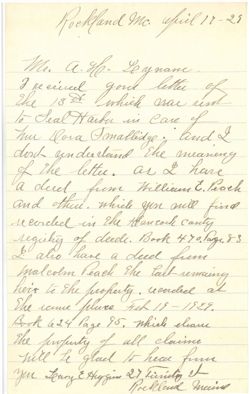 Rockland Me. April 17-29
Mr. A. H. Lynam.
I received your letter of
the 13th which was sent
to Seal Harbor in care of
Mrs Dora Smallidge, and I
dont understand the meaning
of the letter. as I have
a deed from William E. Peach
and others. which you will find
recorded in the Hancock county
registry of deeds. Book 472 Page 83
I also have a deed from
Malcolm Peach the last remaining
heir to the property, recorded at
the same place Feb 18-1929.
Book 624 Page 95. which
the property of all claims
will be glad to hear from
you Mary E Higgins 27 st
Rockland Maine